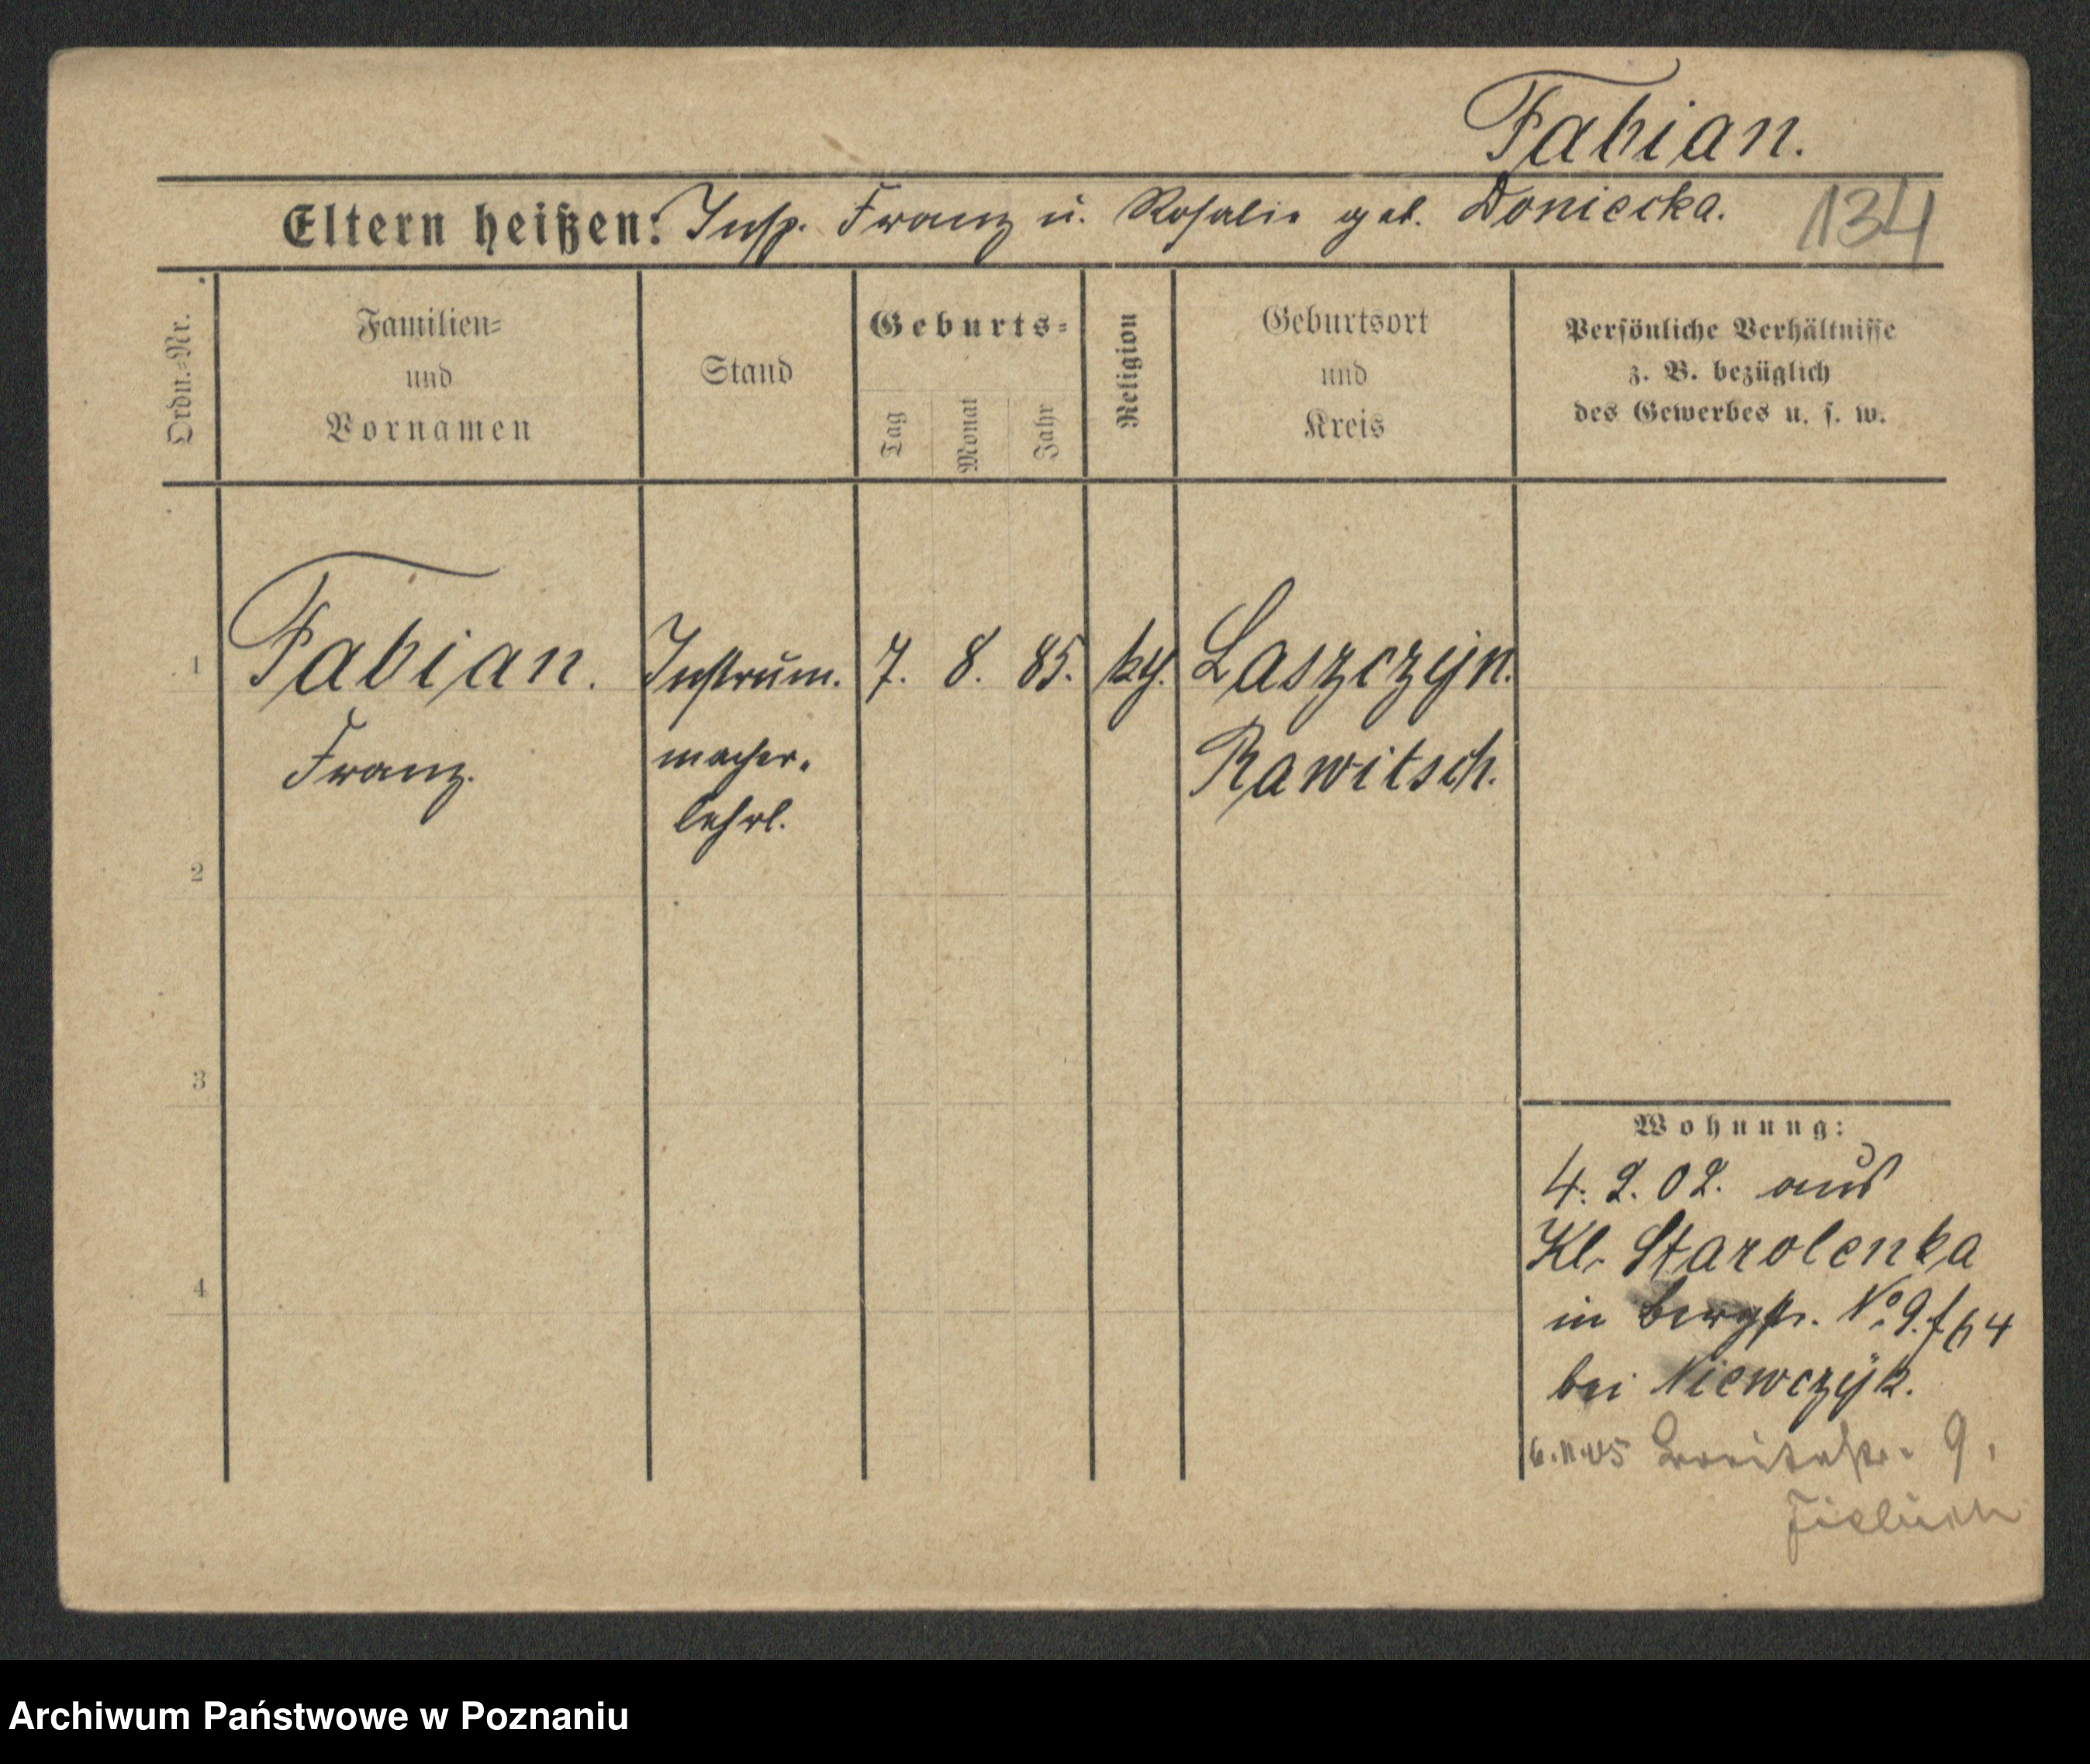 Fabian.
Eltern heißen: Insp. Franz u. Rosalie geb. Doniecka.
134
Ordn.=Nr.
Familien=
und
Vornamen
Stand
Geburts=
Tag
Monat
Jahr
Religion
Geburtsort
und
Kreis
Persönliche Verhältnisse
z. B. bezüglich
des Gewerbes u. s. w.
1
Fabian. Instrum. 7. 8. 85. kth. Laszczyn.
Franz. macher. Rawitsch.
lehrl.
2
3
4
Wohnung:
4. 2. 02. aus
Kl. Starolenka
in Bergstr. No 9.
bei Niewczyk.
Breitestr. 9.
Archiwum Państwowe w Poznaniu